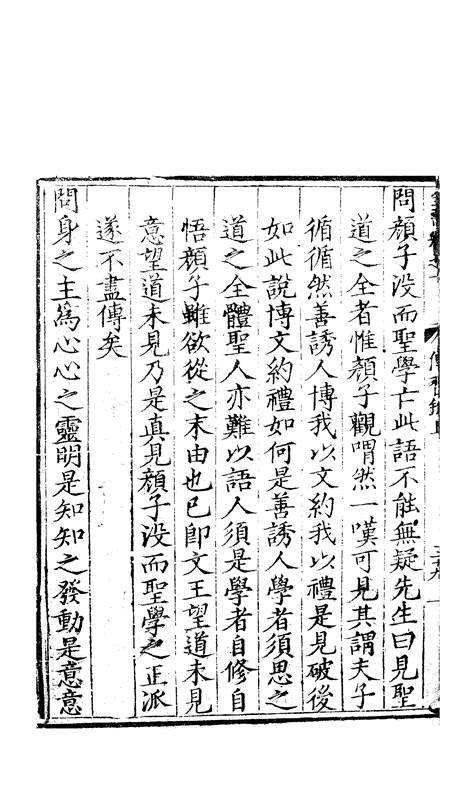 問顔子没而聖學亡此語不能無疑先生曰見聖
道之全者惟顔子觀喟然一嘆可見其謂夫子
循循然善誘人博我以文約我以禮是見破後
如此說博文約禮如何是善誘人學者須思之
道之全體聖人亦難以語人須是學者自修自
悟顔子雖欲從之末由也已即文王望道未見
意望道未見乃是真見顔子没而聖學之正派
遂不盡傳矣
問身之主爲心心之靈明是知知之發動是意意